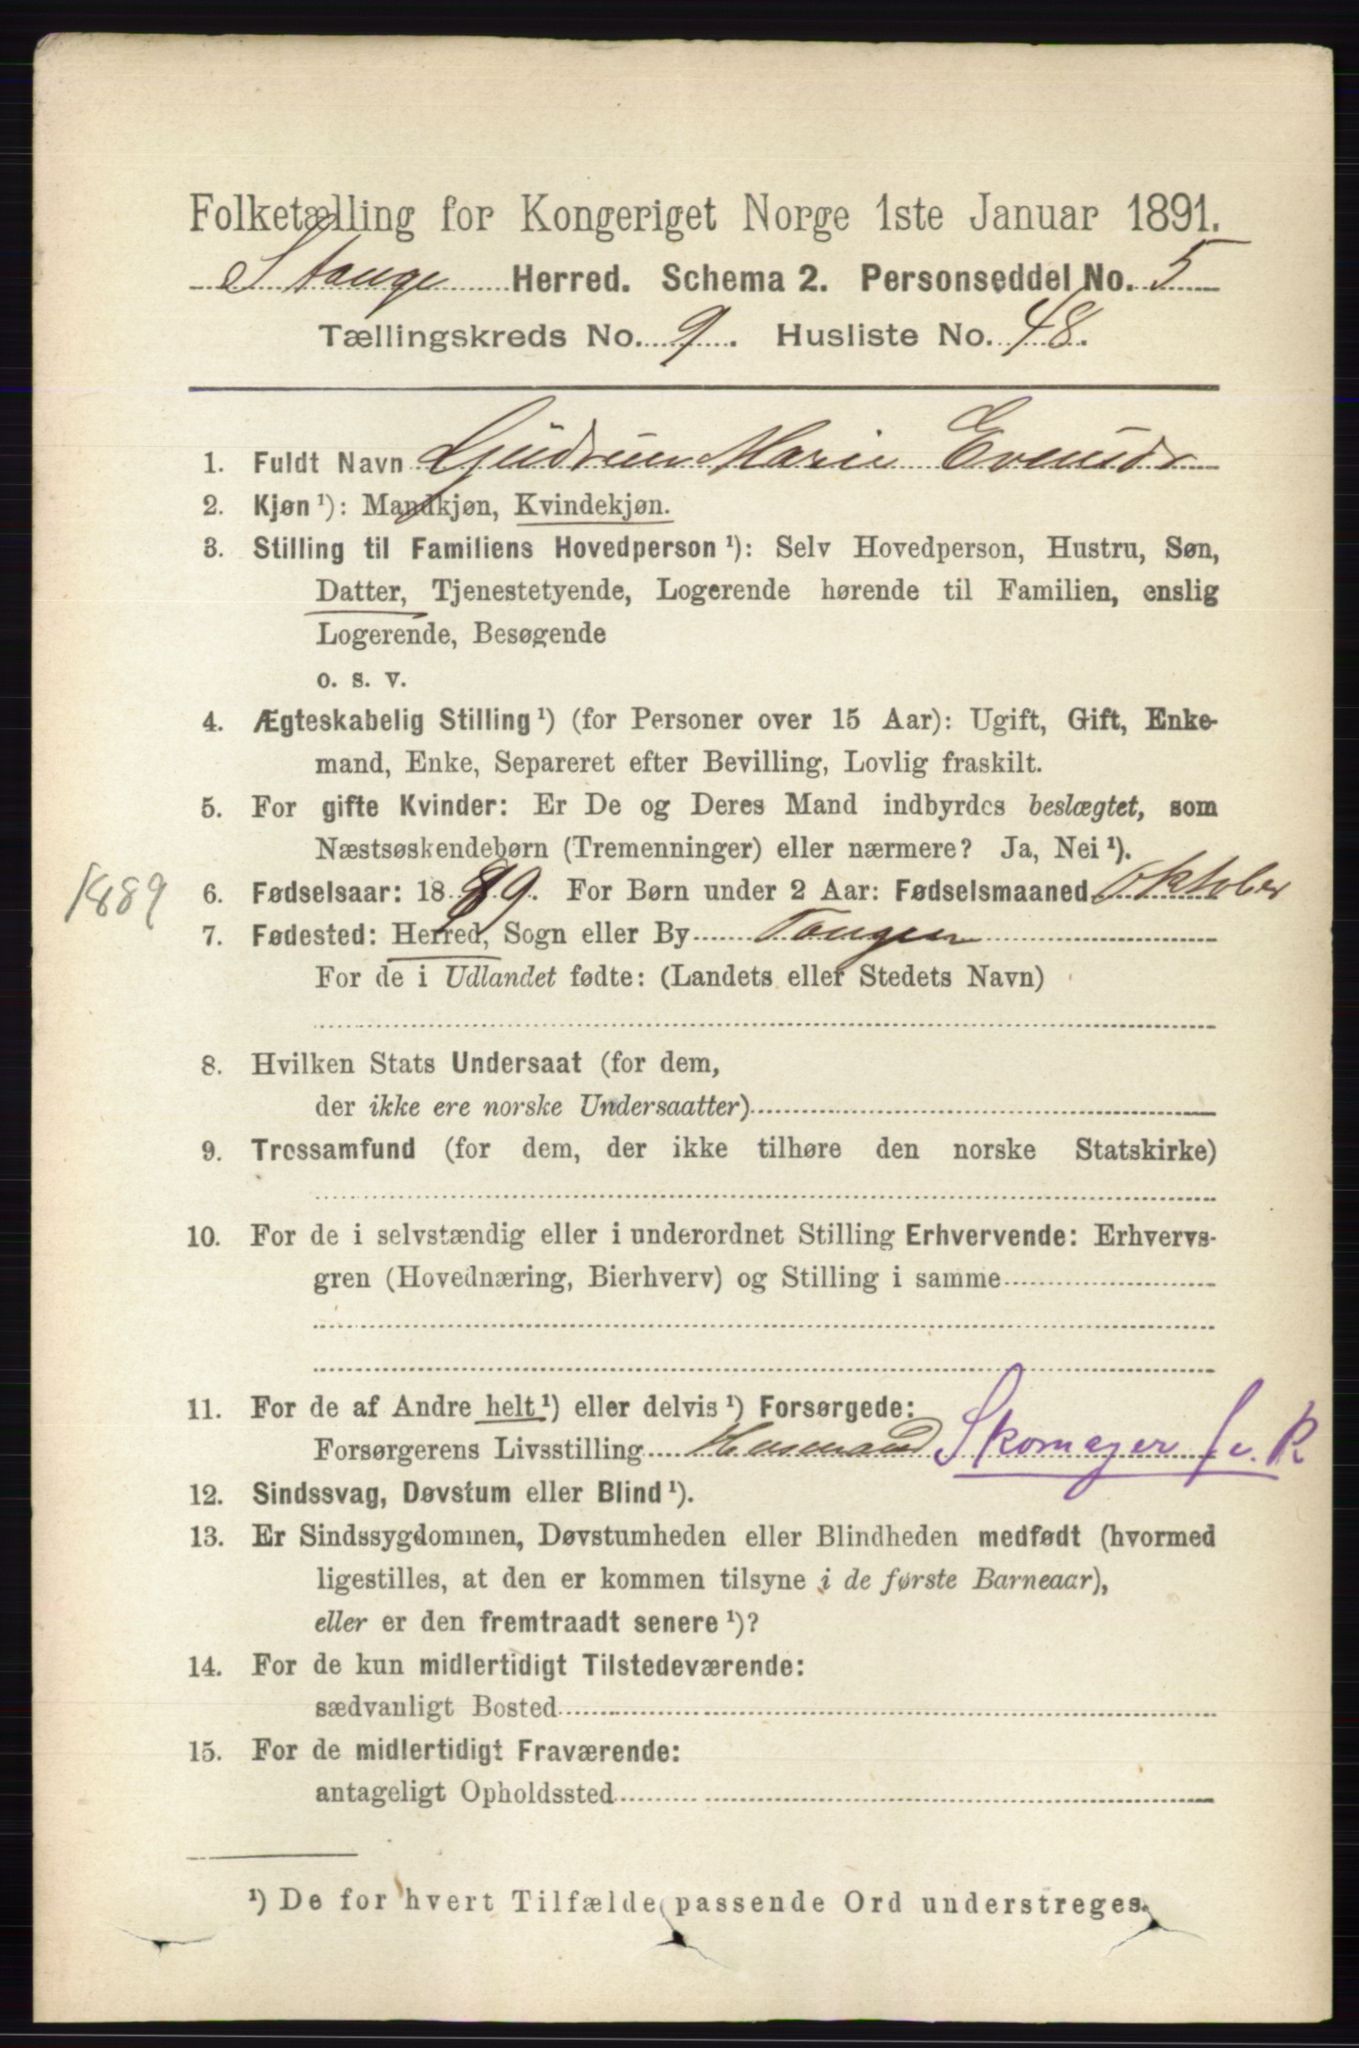 Folketælling for Kongeriget Norge 1ste Januar 1891.
Stange Herred. Schema 2. Personseddel No. 5
Tællingskreds No. 9. Husliste No. 48.
1. Fuldt Navn Gudrun Marie Evensdr
2. Kjøn ¹): Mandkjøn, Kvindekjøn.
3. Stilling til Familiens Hovedperson ¹): Selv Hovedperson, Hustru, Søn,
Datter, Tjenestetyende, Logerende hørende til Familien, enslig
Logerende, Besøgende
o. s. v.
4. Ægteskabelig Stilling ¹) (for Personer over 15 Aar): Ugift, Gift, Enke-
mand, Enke, Separeret efter Bevilling, Lovlig fraskilt.
5. For gifte Kvinder: Er De og Deres Mand indbyrdes beslægtet, som
Næstsøskendebørn (Tremenninger) eller nærmere? Ja, Nei ¹).
1889 6. Fødselsaar: 1889. For Børn under 2 Aar: Fødselsmaaned Oktober
7. Fødested: Herred, Sogn eller By Tangen
For de i Udlandet fødte: (Landets eller Stedets Navn)
8. Hvilken Stats Undersaat (for dem,
der ikke ere norske Undersaatter)
9. Trossamfund (for dem, der ikke tilhøre den norske Statskirke)
10. For de i selvstændig eller i underordnet Stilling Erhvervende: Erhvervs-
gren (Hovednæring, Bierhverv) og Stilling i samme
11. For de af Andre helt ¹) eller delvis ¹) Forsørgede:
Forsørgerens Livsstilling Husmand Skomager f. e. R
12. Sindssvag, Døvstum eller Blind ¹).
13. Er Sindssygdommen, Døvstumheden eller Blindheden medfødt (hvormed
ligestilles, at den er kommen tilsyne i de første Barneaar),
eller er den fremtraadt senere ¹)?
14. For de kun midlertidigt Tilstedeværende:
sædvanligt Bosted
15. For de midlertidigt Fraværende:
antageligt Opholdssted
¹) De for hvert Tilfælde passende Ord understreges.